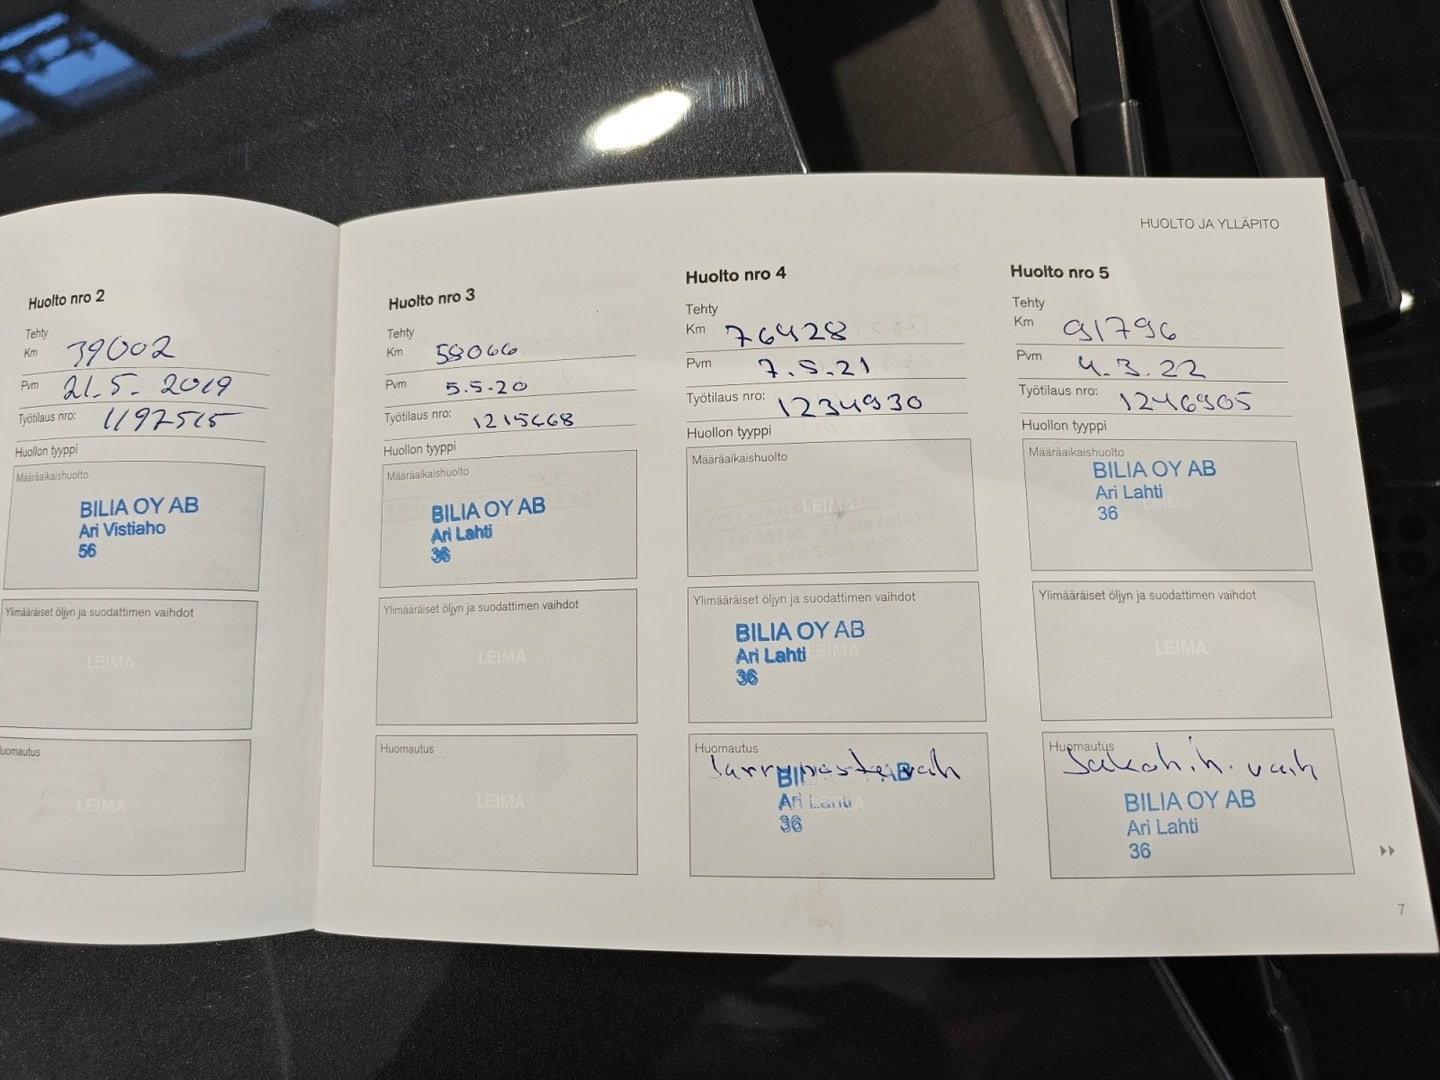 HUOLTO JA YLLÄPITO
Huolto nro 2
Tehty
Km 39002
Pvm 21.5.2019
Työtilaus nro: 1197515
Huollon tyyppi
Määräaikaishuolto
BILIA OY AB
Ari Vistiaho
56
Ylimääräiset öljyn ja suodattimen vaihdot
LEIMA
uomautus
LEIMA
Huolto nro 3
Tehty
Km 58066
Pvm 5.5.20
Työtilaus nro: 1215668
Huollon tyyppi
Määräaikaishuolto
BILIA OY AB
Ari Lahti
36
Ylimääräiset öljyn ja suodattimen vaihdot
LEIMA
Huomautus
LEIMA
Huolto nro 4
Tehty
Km 76428
Pvm 7.5.21
Työtilaus nro: 1234930
Huollon tyyppi
Määräaikaishuolto
LEIMA
Ylimääräiset öljyn ja suodattimen vaihdot
BILIA OY AB
Ari Lahti
LEIMA
36
Huomautus
Jarrunestevaih
Ari Lahti
36
Huolto nro 5
Tehty
Km 91796
Pvm 4.3.22
Työtilaus nro: 1246905
Huollon tyyppi
Määräaikaishuolto
BILIA OY AB
Ari Lahti
LEIMA
36
Ylimääräiset öljyn ja suodattimen vaihdot
LEIMA
Huomautus
Jakoh.h. vaih
BILIA OY AB
Ari Lahti
36
7